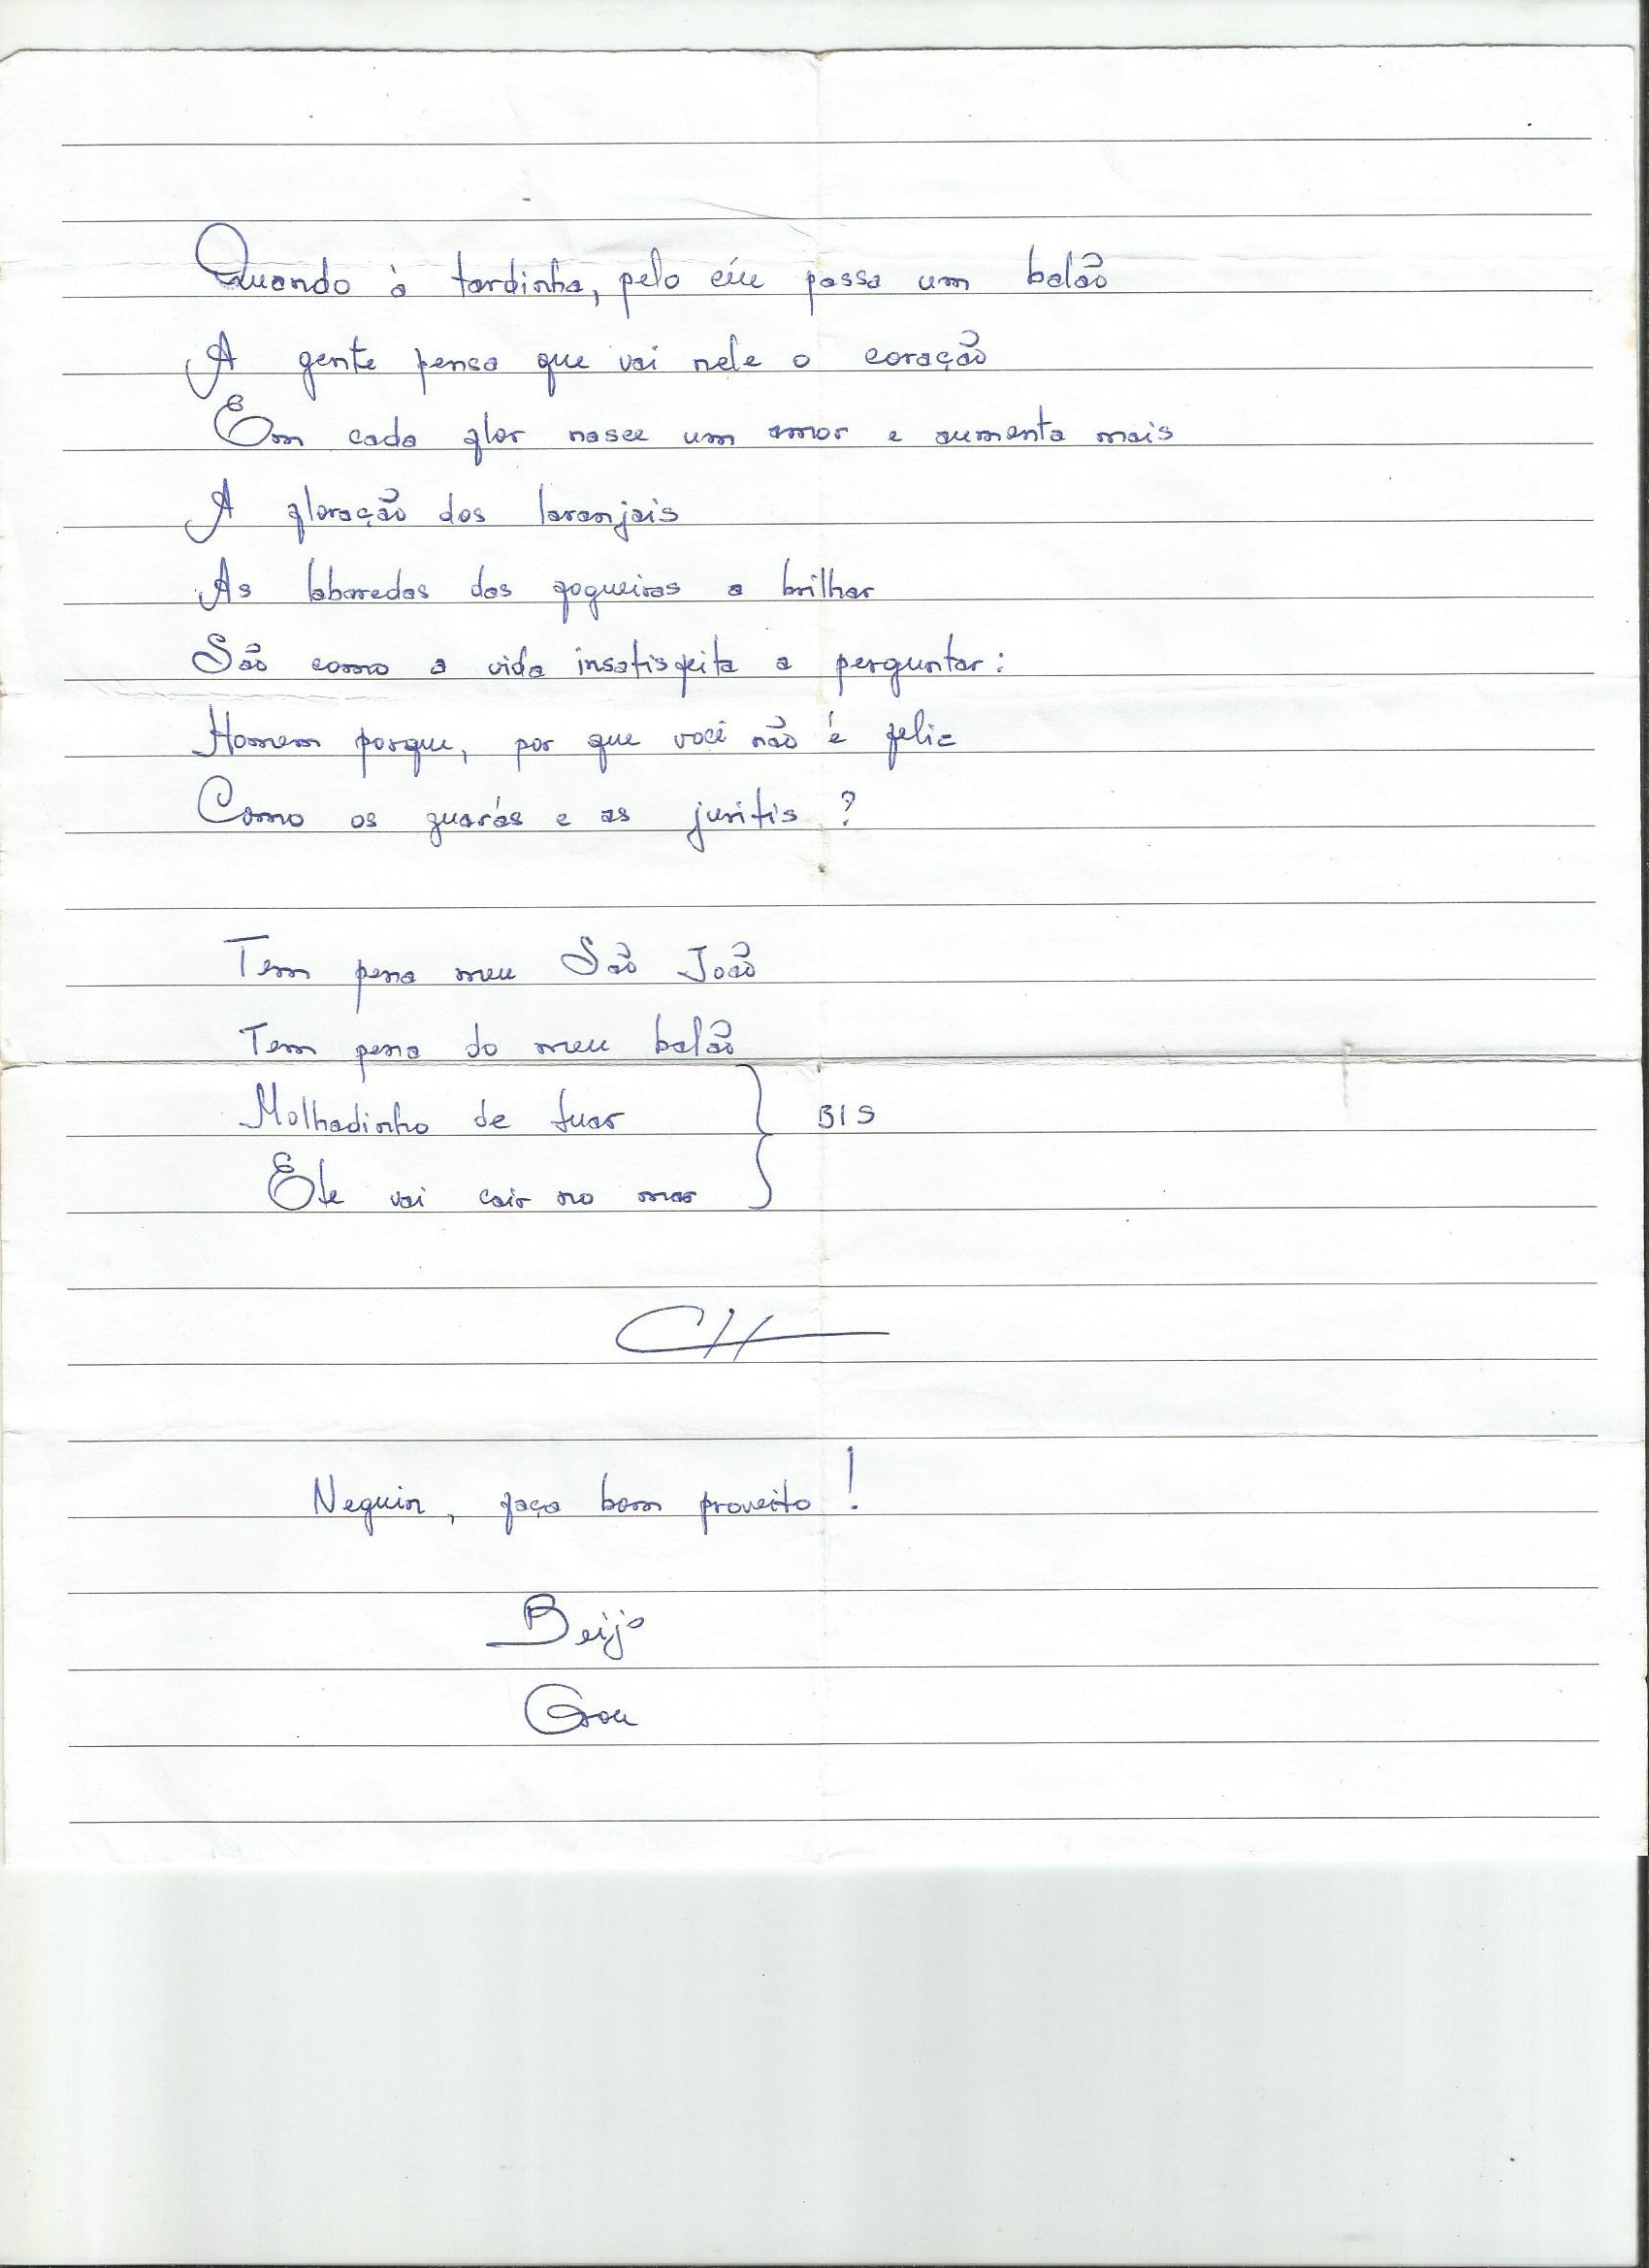 Quando à tardinha, pelo céu passa um balão
A gente pensa que vai nele o coração
Em cada flor nasce um amor e aumenta mais
A floração dos laranjais
As labaredas das fogueiras a brilhar
São como a vida insatisfeita a perguntar:
Homem porque, por que você não é feliz
Como os guarás e as juritis ?
Tem pena meu São João
Tem pena do meu balão
Molhadinho de luar
BIS
Ele vai cair no mar
Neguin, faça bom proveito !
Beijo